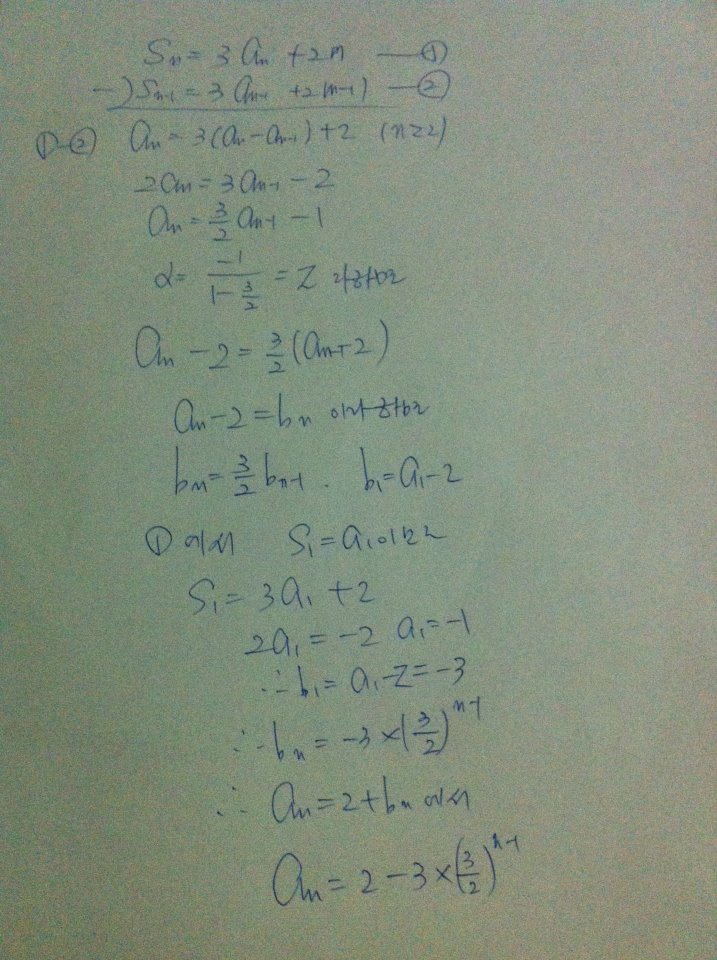 Sn = 3an + 2n —①
-) Sn-1 = 3an-1 + 2(n-1) —②
①-② an = 3(an - an-1) + 2 (n≥2)
2an = 3an-1 - 2
an = 3/2 an-1 - 1
α = -1/(1 - 3/2) = 2 라하면
an - 2 = 3/2 (an-1 - 2)
an - 2 = bn 이라 하면
bn = 3/2 bn-1 . b1 = a1 - 2
① 에서 S1 = a1이므로
S1 = 3a1 + 2
2a1 = -2 a1 = -1
∴ b1 = a1 - 2 = -3
∴ bn = -3 × (3/2)^n-1
∴ an = 2 + bn 에서
an = 2 - 3 × (3/2)^n-1